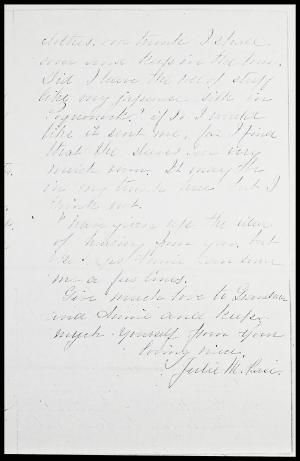 clothes. or trunk I shall
over and keep in the
Did I leave the rest of stuff
like my japanese silk in
if so I would
like it sent me, for I find
that the sleeves are very
much worn. It may be
in my trunk here but I
think not.
I have given up the idea
of hearing from you, but
me a few lines.
Give much love to Grandma
and Annie and keep
much yourself from your
loving niece,
Julie M.